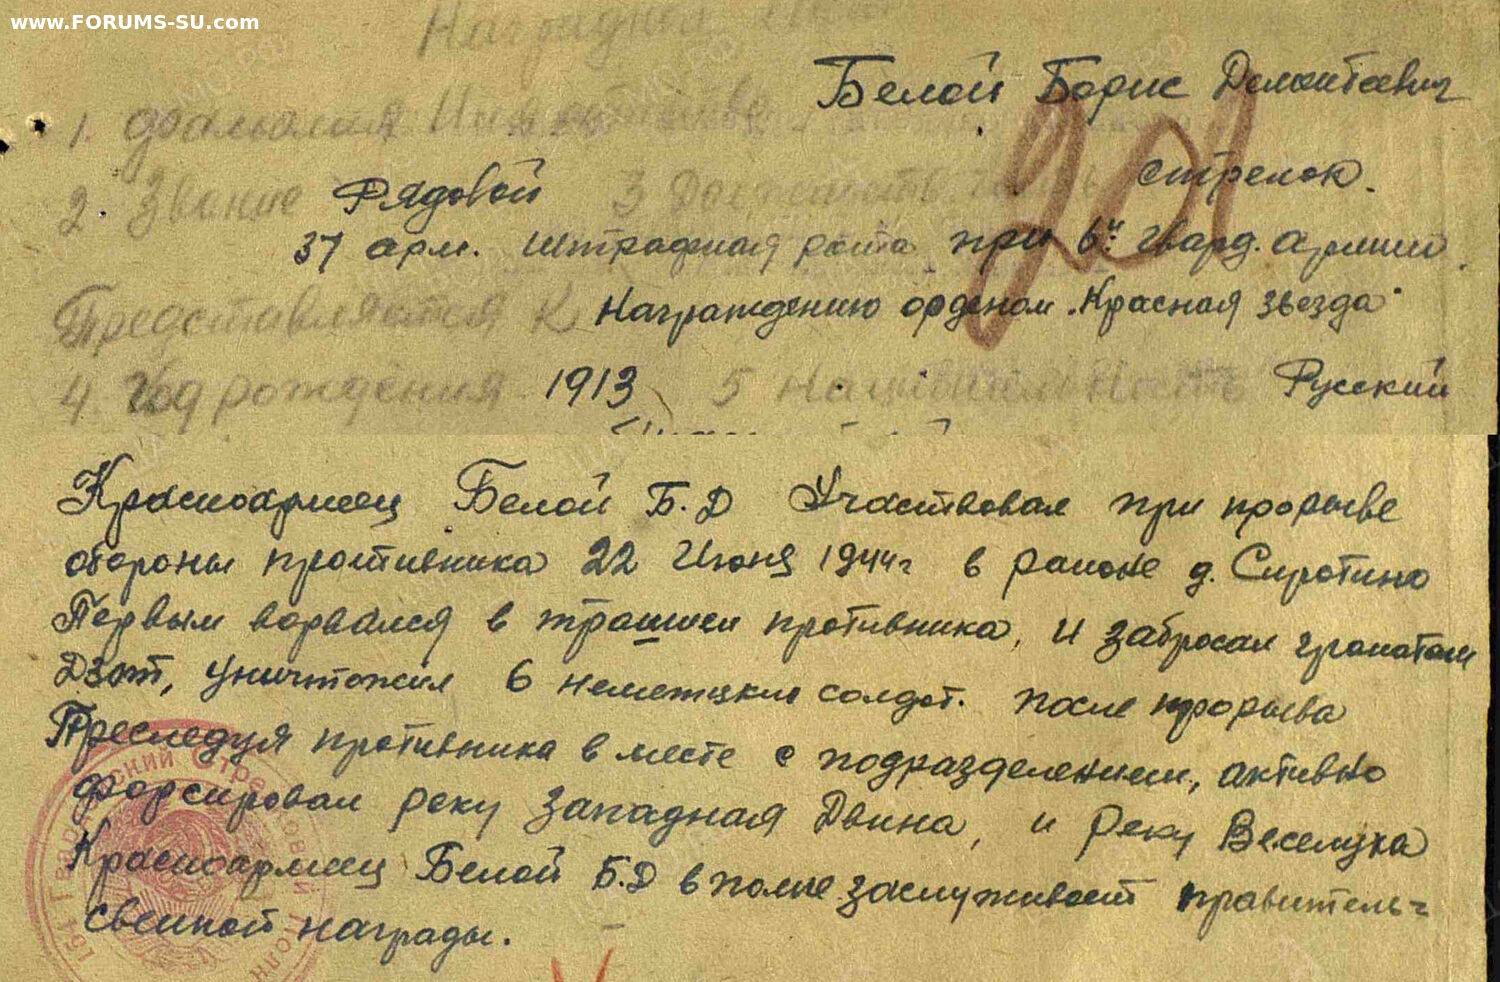 www.FORUMS-SU.com
Наградной
Белой Борис Дементьевич
1. Фамилия Имя Отчество
2. Звание Рядовой 3 Должность часть стрелок.
37 арм. штрафная рота при 6й гвард. армии.
Представляется к Награждению орденом "Красная звезда"
4. Год рождения 1913 5 Национальность Русский
Красноармеец Белой Б.Д Участвовал при прорыве
обороны противника 22 Июня 1944г в районе д. Сиротино
Первым ворвался в траншеи противника, и забросал гранатами
Дзот, уничтожил 6 немецких солдат. после прорыва
Преследуя противника в месте с подразделением, активно
форсировал реку Западная Двина, и реку Веселуха
Красноармеец Белой Б.Д в полне заслуживает правитель-
свенной награды.
161 Гвардейский Стрелковый Полк